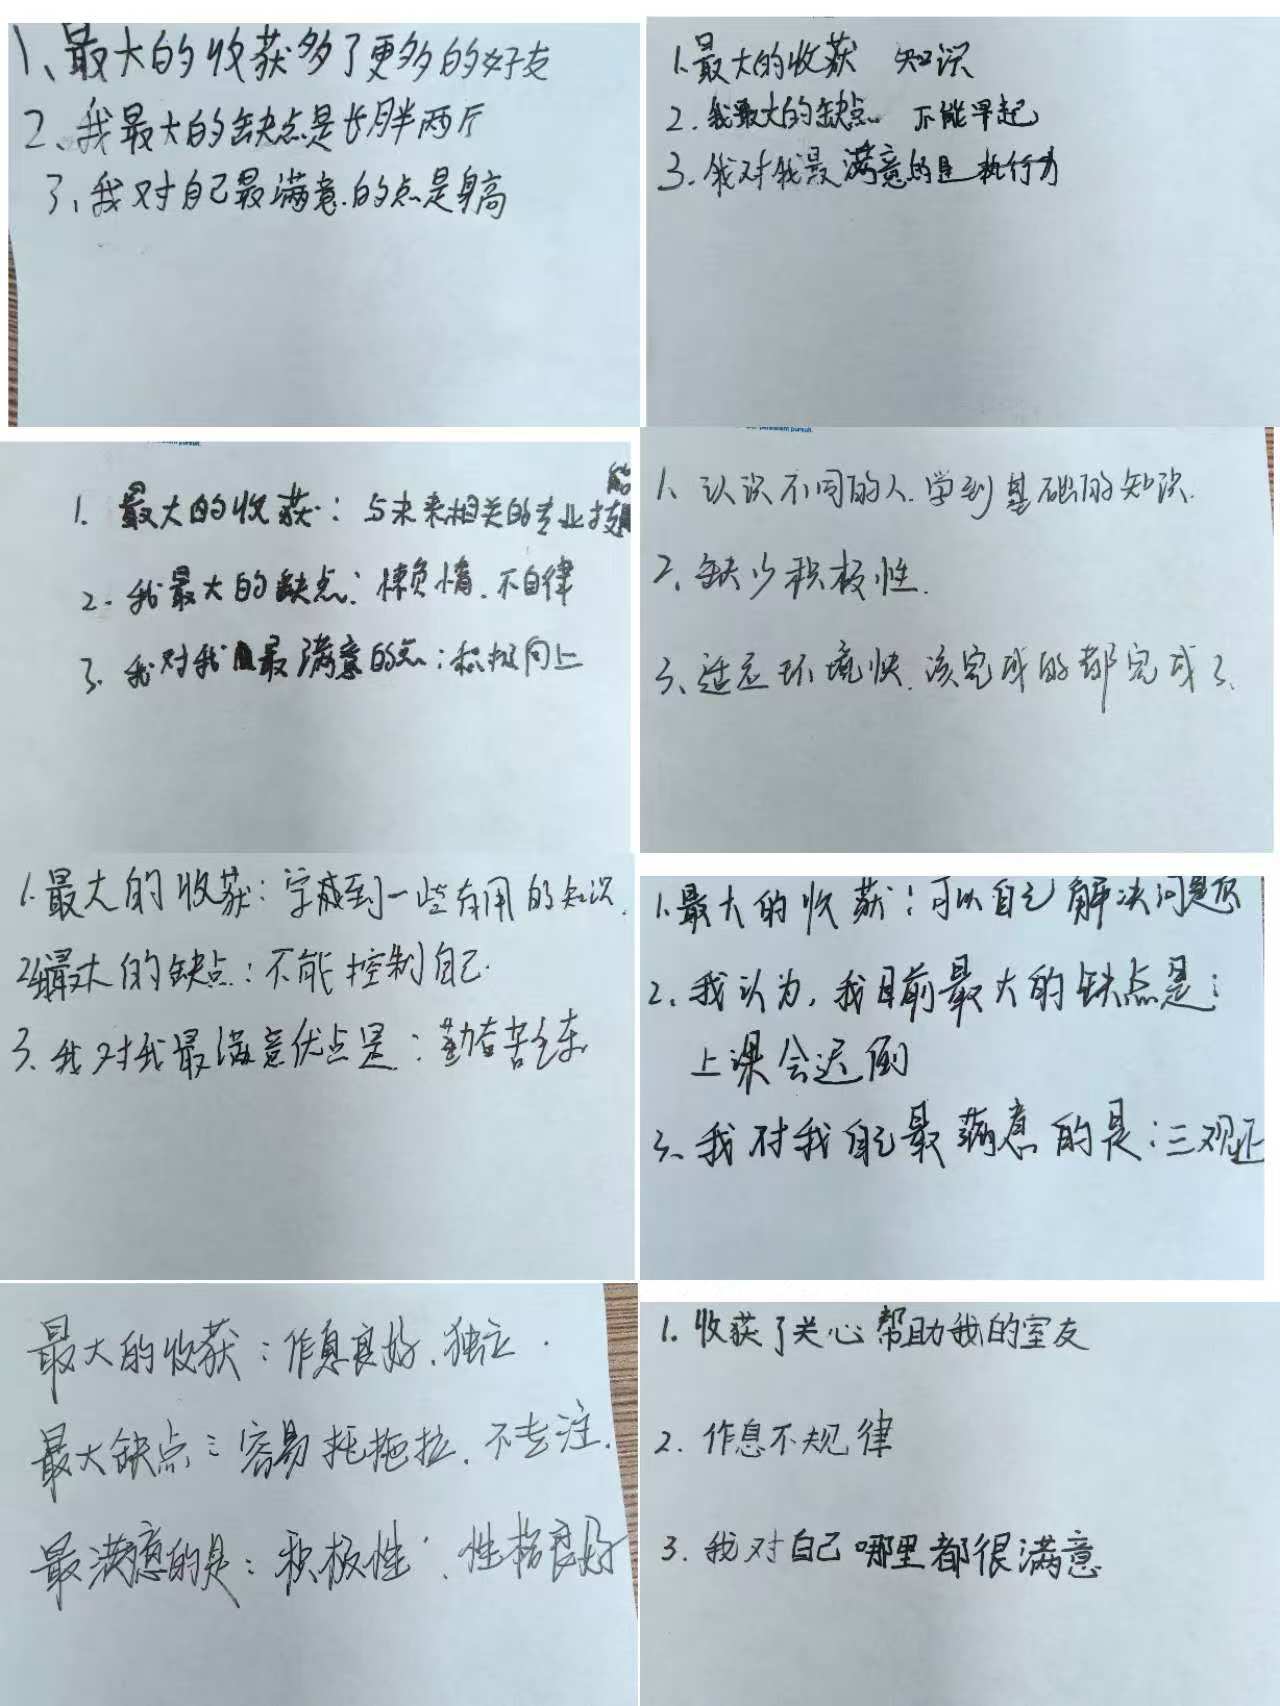 1、最大的收获多了更多的好友
2、我最大的缺点是长胖两斤
3、我对自己最满意的点是身高
1.最大的收获 知识
2.我最大的缺点 不能早起
3.我对我最满意的是执行力
1.最大的收获：与未来相关的专业技能
2.我最大的缺点：懒惰惰.不自律
3.我对我最满意的点：积极向上
1、认识不同的人.学到基础的知识.
2、缺少积极性.
3、适应环境快.该完成的都完成了.
1.最大的收获：学到一些有用的知识.
2.最大的缺点：不能控制自己.
3.我对我最满意优点是：勤 苦
1.最大的收获：可以自己解决问题
2.我认为,我目前最大的缺点是：
上课会迟到
3.我对我自己最满意的是：三观正
最大的收获：作息良好.独立.
最大缺点：容易拖拉.不专注.
最满意的是：积极性.性格良好
1.收获了关心帮助我的室友
2.作息不规律
3.我对自己哪里都很满意